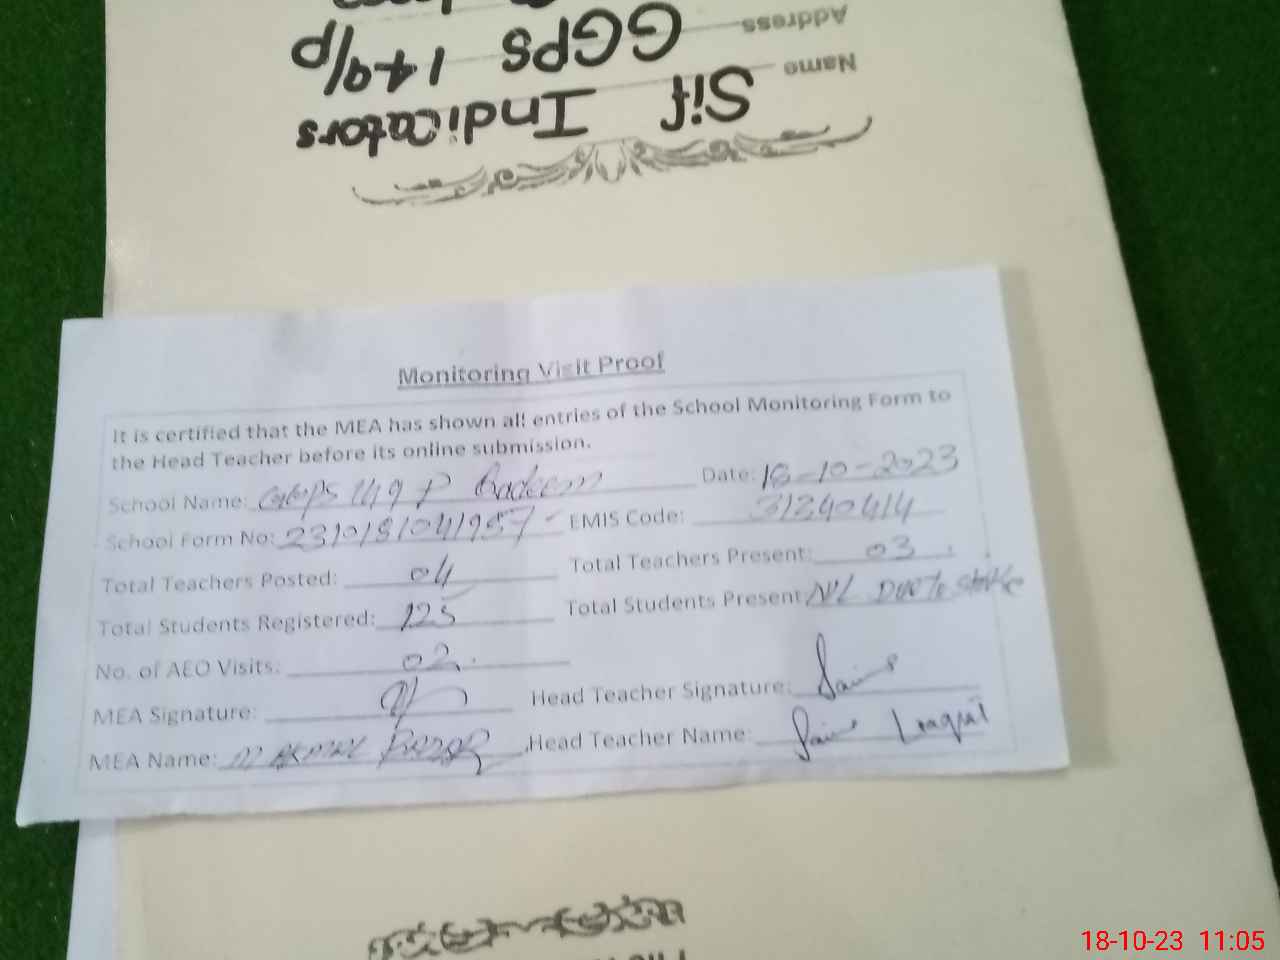 Address GGPS 149/P
Name Sif Indicators
Monitoring Visit Proof
It is certified that the MEA has shown all entries of the School Monitoring Form to
the Head Teacher before its online submission.
School Name: GGPS 149 P Date: 18-10-2023
School Form No: EMIS Code: 31240414
Total Teachers Posted: 04 Total Teachers Present: 03
Total Students Registered: 125 Total Students Present: NIL Due to strike
No. of AEO Visits: 02
MEA Signature: Head Teacher Signature:
MEA Name: Head Teacher Name:
18-10-23 11:05